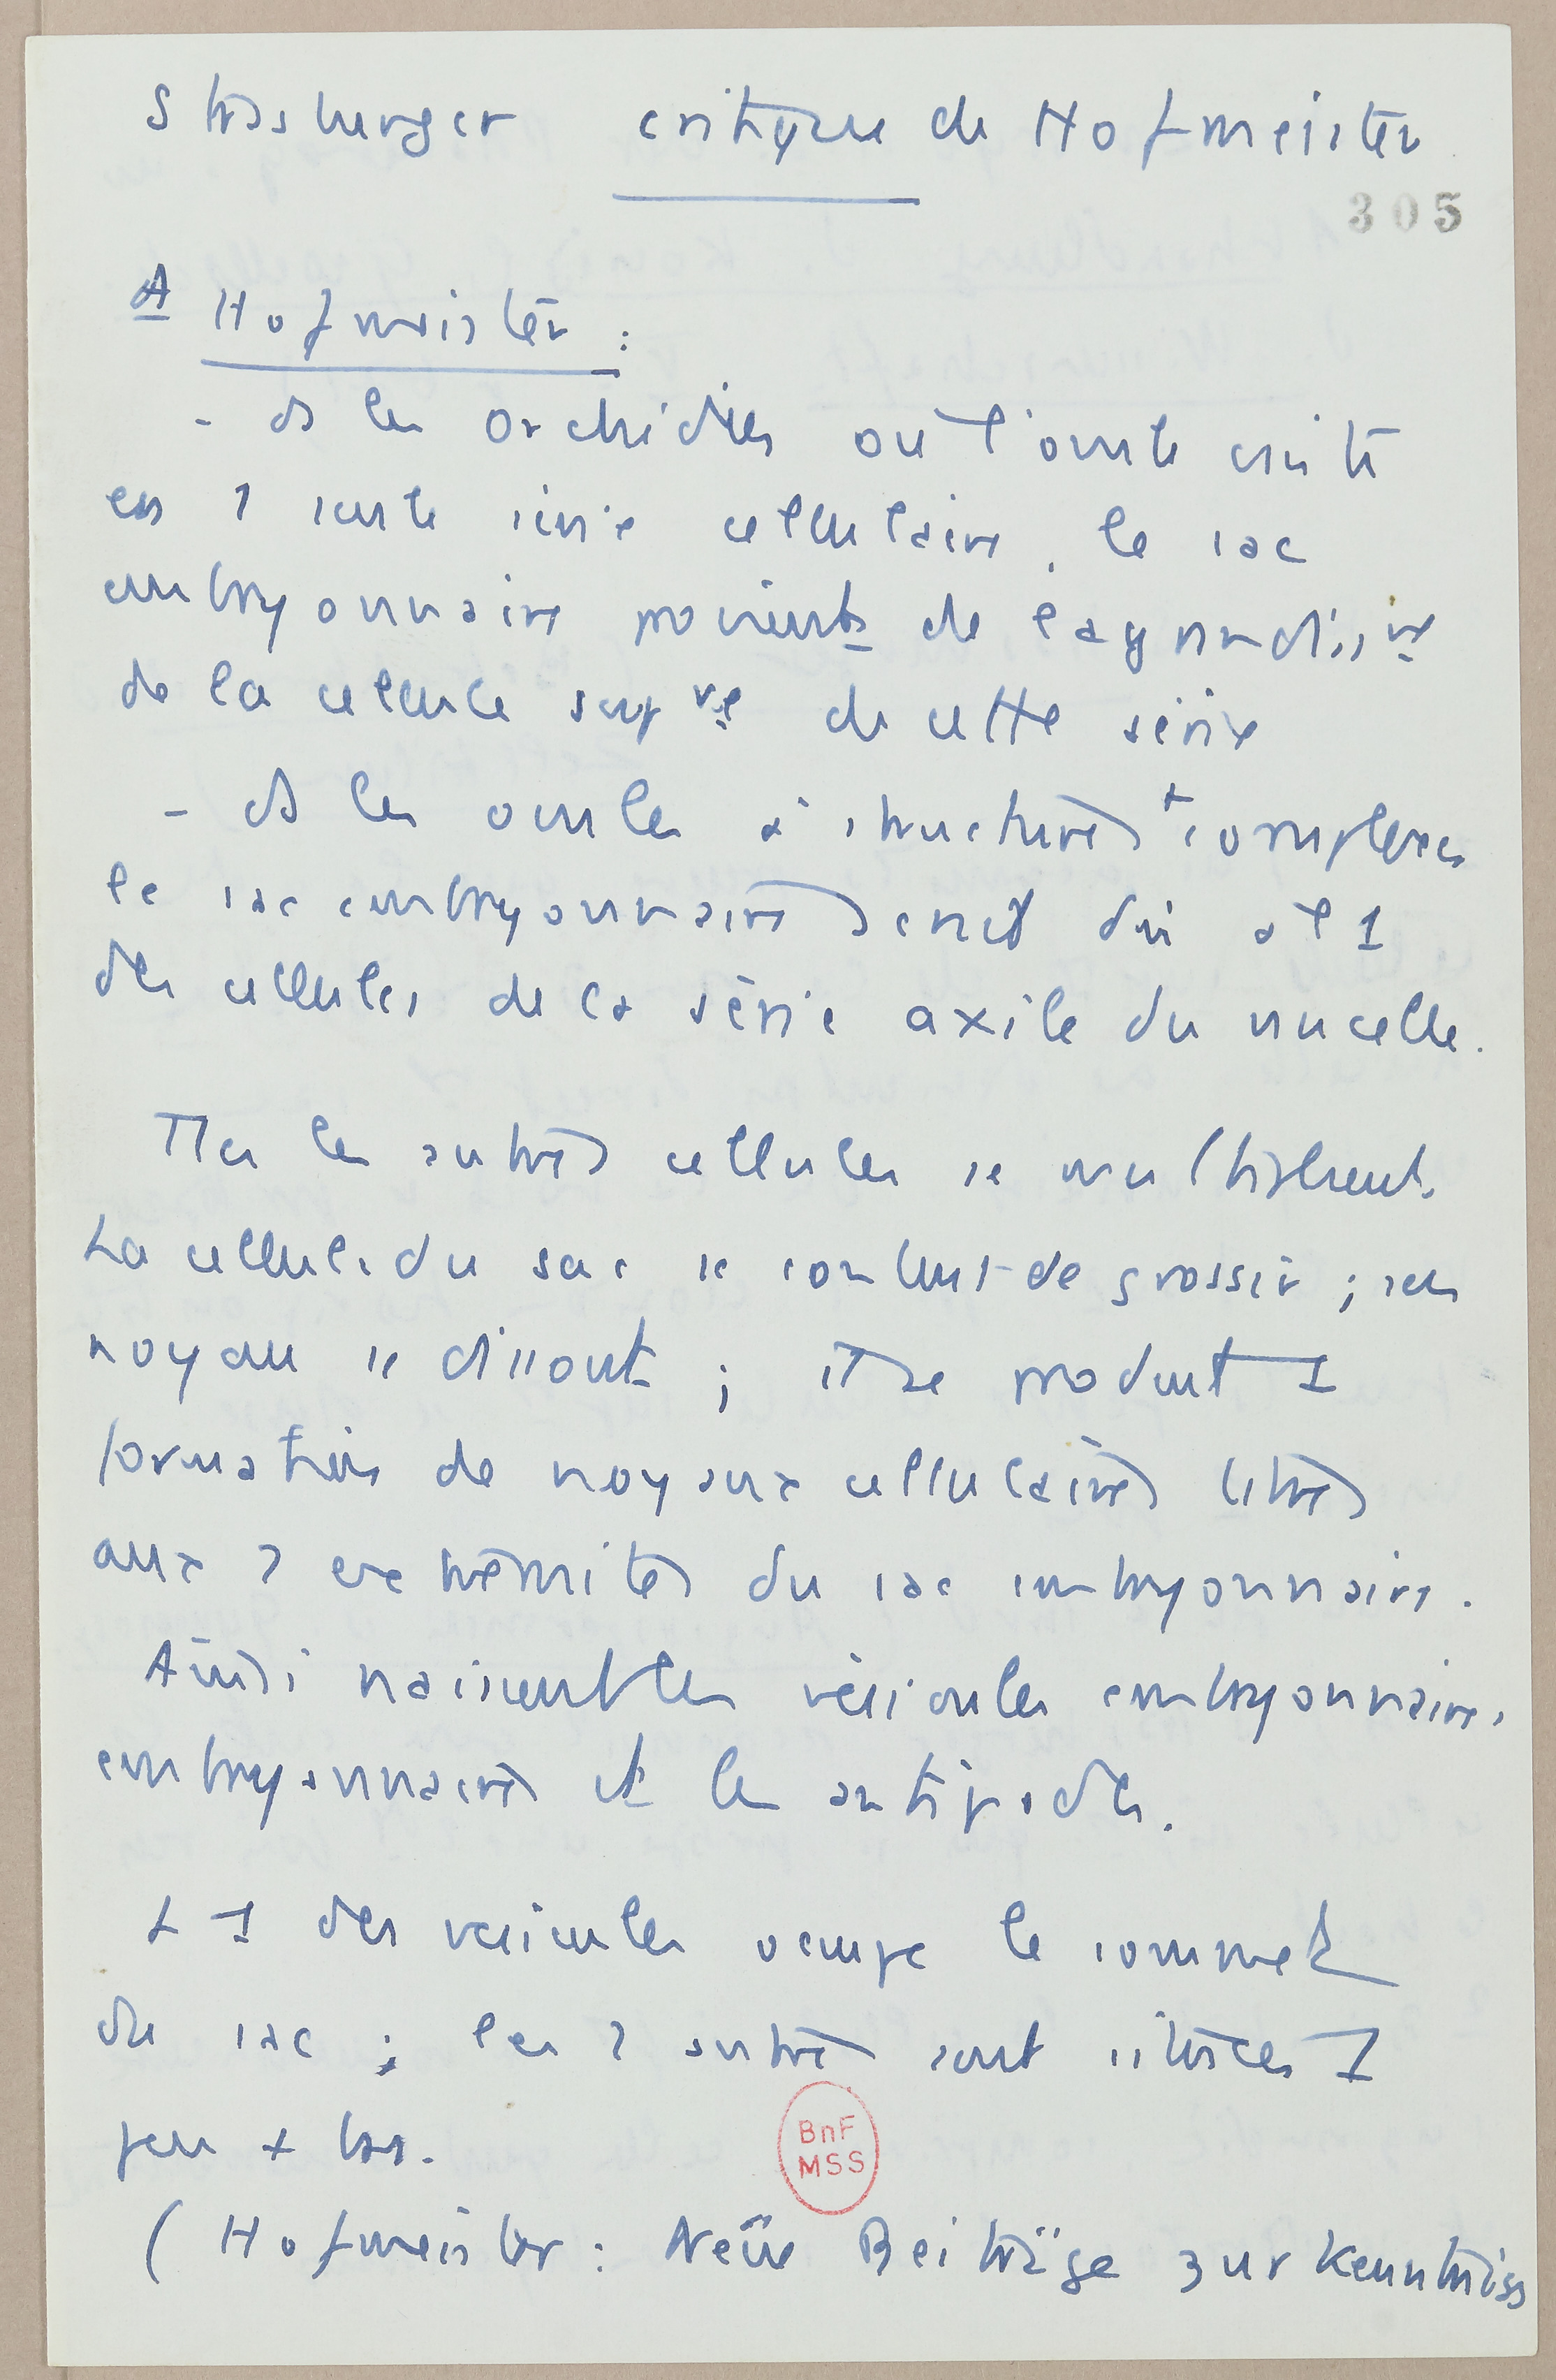 Strasburger critique de Hofmeister
305
A Hofmeister :
- ds les Orchidées où l'ovule consiste
en 1 seule série cellulaire, le sac
embryonnaire provient de l'agrandiss
de la cellule sup re de cette série
- ds les ovules à structures + complexes
le sac embryonnaire est dû à l'1
des cellules de la série axile du nucelle.
Ttes les autres cellules se multiplient.
La cellule du sac se contente de grossir ; ses
noyau se dissout ; il se produit 1
formation de noyaux cellulaires libres
aux 2 extrémités du sac embryonnaire.
Ainsi naissent les vésicules embryonnaires
embryonnaires et les antipodes.
L 1 des vésicules occupe le sommet
du sac ; les 2 autres sont situées 1
peu + bas.
BnF
MSS
( Hofmeister : Neue Beiträge zur Kenntniss